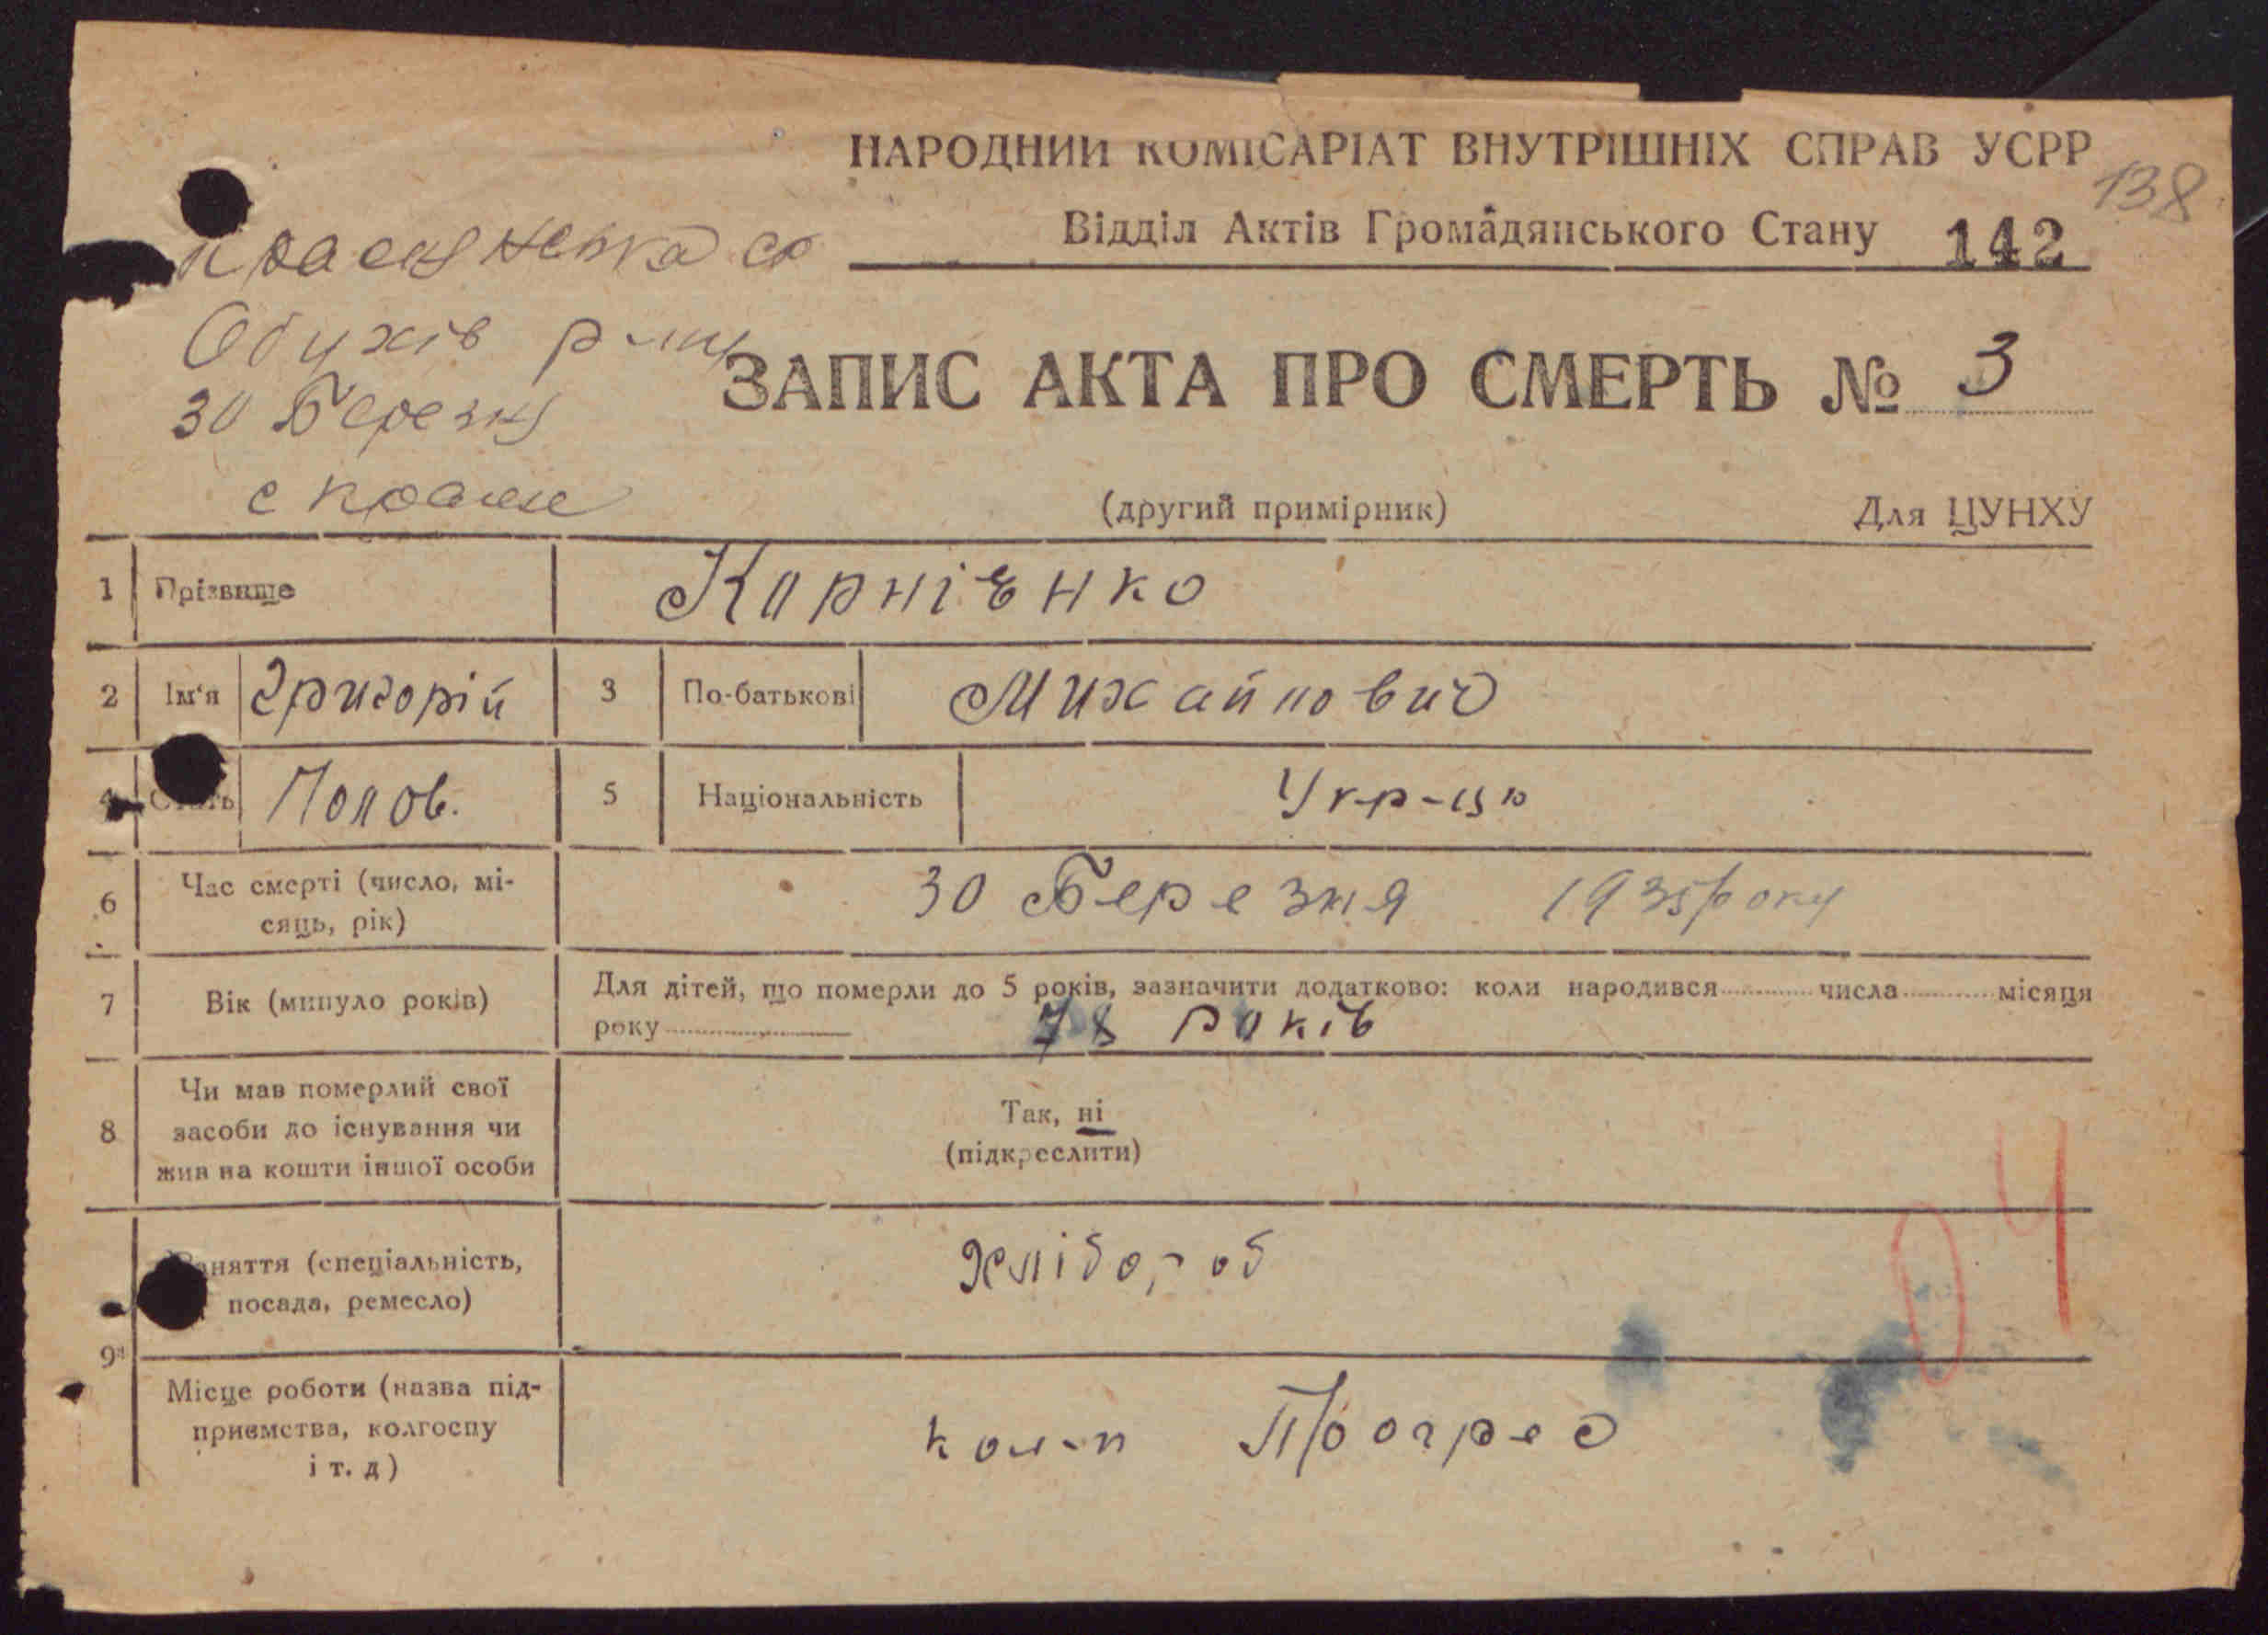 НАРОДНИЙ КОМІСАРІАТ ВНУТРІШНІХ СПРАВ УСРР
138
Відділ Актів Громадянського Стану 142
Обухів р-ну
30 Березня
ЗАПИС АКТА ПРО СМЕРТЬ № 3
(другий примірник) Для ЦУНХУ
1 Прізвище Корнієнко
2 Ім'я Григорій 3 По-батькові Михайлович
4 Стать Чолов. 5 Національність Укр-ць
6 Час смерті (число, мі-
сяць, рік) 30 Березня 1935 року
7 Вік (минуло років) Для дітей, що померли до 5 років, зазначити додатково: коли народився числа місяця
року 78 років
8 Чи мав померлий свої
засоби до існування чи
жив на кошти іншої особи
Так, ні
(підкреслити)
04
Заняття (спеціальність,
посада, ремесло) Хлібороб
9
Місце роботи (назва під-
приємства, колгоспу
і т. д)
Прогрес